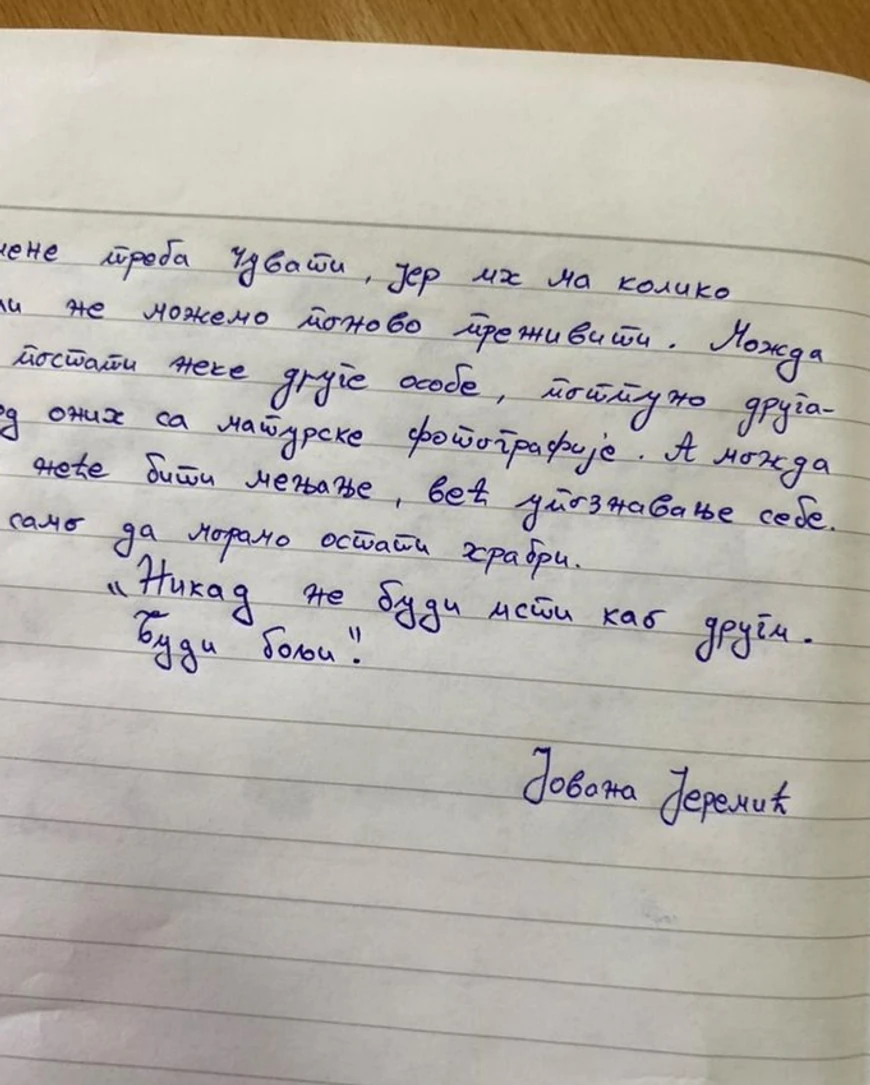 треба чувати, јер их ма колико
не можемо поново преживити. Можда
постати неке друге особе, потпуно друга-
оних са матурске фотографије. А можда
неће бити мењање, већ упознавање себе.
само да морамо остати храбри.
„Никад не буди исти као други.
Буди бољи".
Јована Јеремић